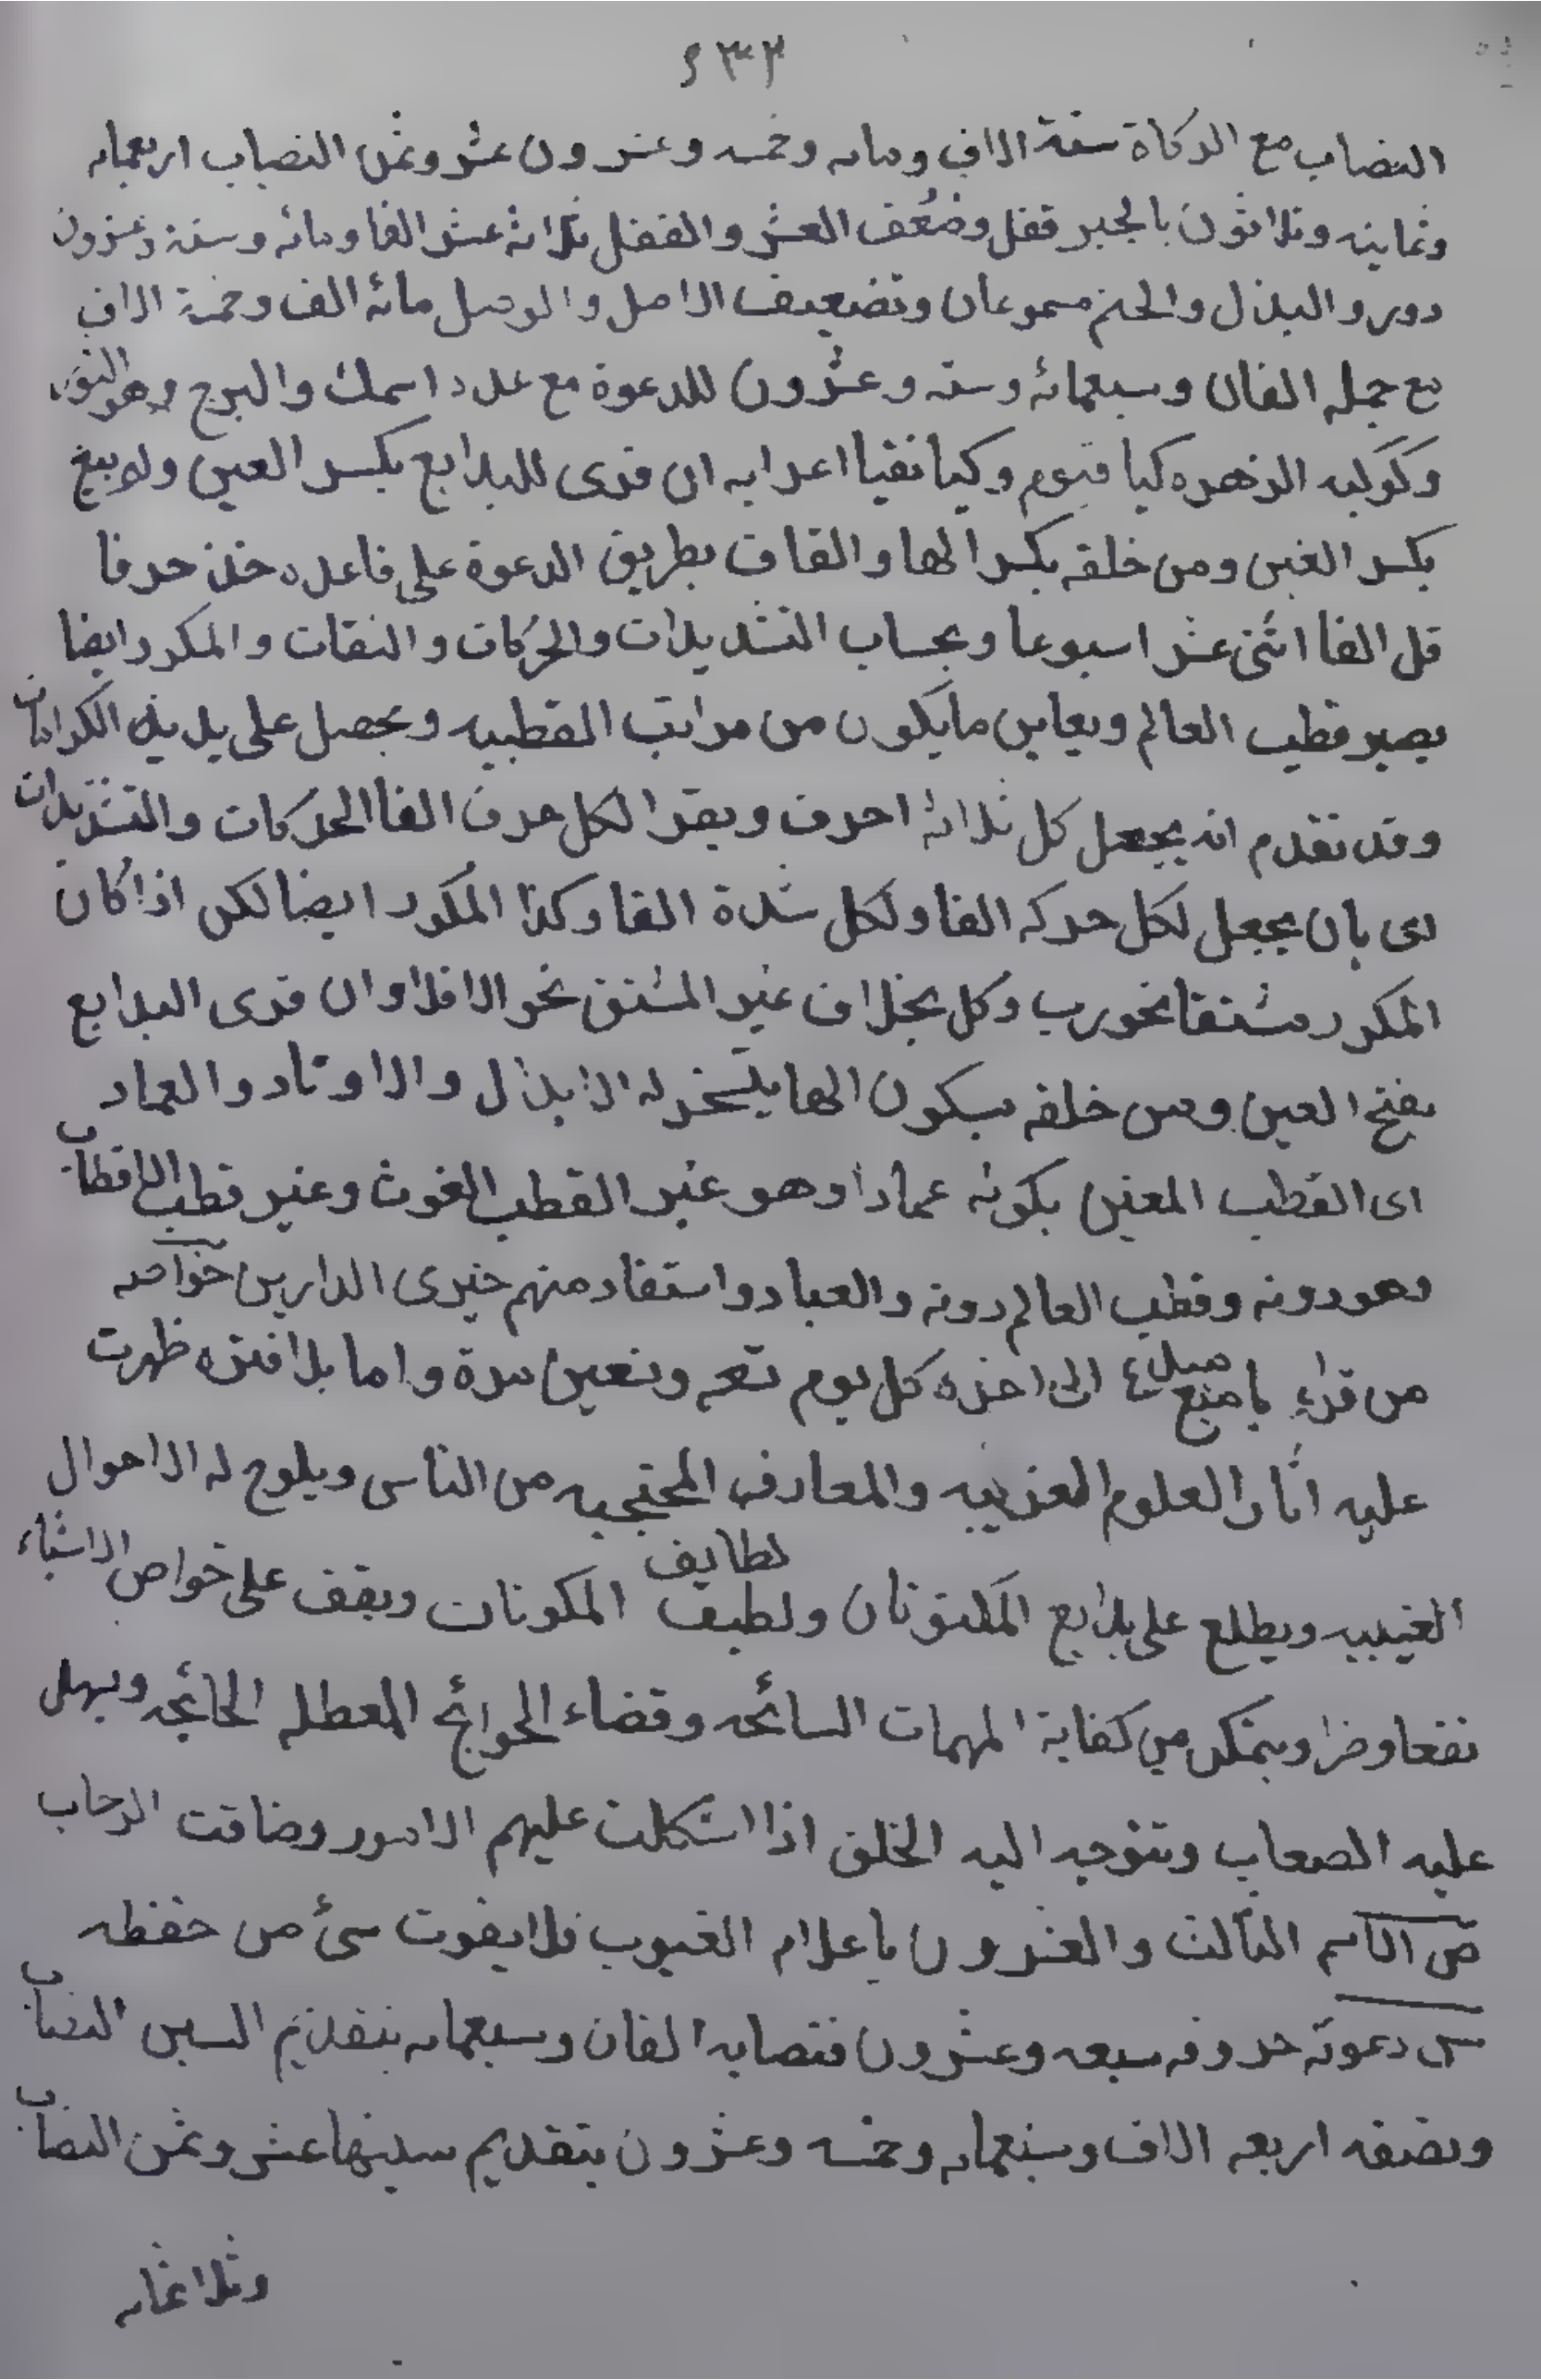 ٢٣٣
النصاب مع الزكاة ستة الاف ومايه وخمسه وعشرون عشر وثمن النصاب اربعمايه
وثمانيه وثلاثون بالجبر قفل وضعف العشر والقفل ثلاثة عشر الفا ومائه وستة وعشرون
دور والبذل والختم مسموعان وتضعيف الاصل والوصل مائة الف وخمسة الاف
مع جمله الفان وسبعمائه وسته وعشرون للدعوة مع عدد اسمك والبرج وهو الثور
وكوكبه الزهره كيا قيوم وكيا نقيا اعرابه ان قرى للبدايع بكسر العين ولم يبغ
بكسر الغين ومن خلقه بكسر الها والقاف بطريق الدعوة على قاعده خذ حرفا
قل الفا اثنى عشر اسبوعا وبحساب التشديدات والحركات والنقات والمكرر ايضا
يصير قطب العالم ويعاين ما يكون من مراتب القطبيه ويحصل على يديه الكرامات
وقد تقدم انه يجعل كل ثلاثة احرف ويقرا لكل حرف الفا الحركات والتشديدات
اى بان يجعل لكل حركه الفا ولكل شدة الفا وكذا المكرر ايضا لكن اذا كان
المكرر مشتقا نحو رب وكل بخلاف غير المشتق نحو الا فلا وان قرى البدايع
بفتح العين ومن خلقه بسكون الها يتسخر له الابدال والاوتاد والعماد
اى القطب المعين بكونه عمادا وهو غير القطب الغوث وغير قطب الاقطاب
وهو دونه وقطب العالم دونه والعباد واستفاد منهم خيرى الدارين خواصه
من قراء يا مبدع الى اخره كل يوم تسع وتسعين مرة واما بلا فتره ظهرت
عليه اثار العلوم الغريبه والمعارف المحتجبه من الناس ويلوح له الاحوال
الغيبيه ويطلع على بدايع المكنونات ولطيف لطايف المكونات ويقف على خواص الاشياء
نفعا وضرا ويتمكن من كفاية المهمات السانحه وقضاء الحوائج المعطله الحائجه ويسهل
عليه الصعاب وتتوجه اليه الخلق اذا اشكلت عليهم الامور وضاقت الرحاب
ص الاسم الثالث والعشرون يا علام الغيوب فلا يفوت شئ من حفظه
س دعوته حروفه سبعه وعشرون فنصابه الفان وسبعمايه بتقديم السين النصاب
ونصفه اربعه الاف وسبعمايه وخمسه وعشرون بتقديم سينها عشر وثمن النصاب
وثلاثمايه